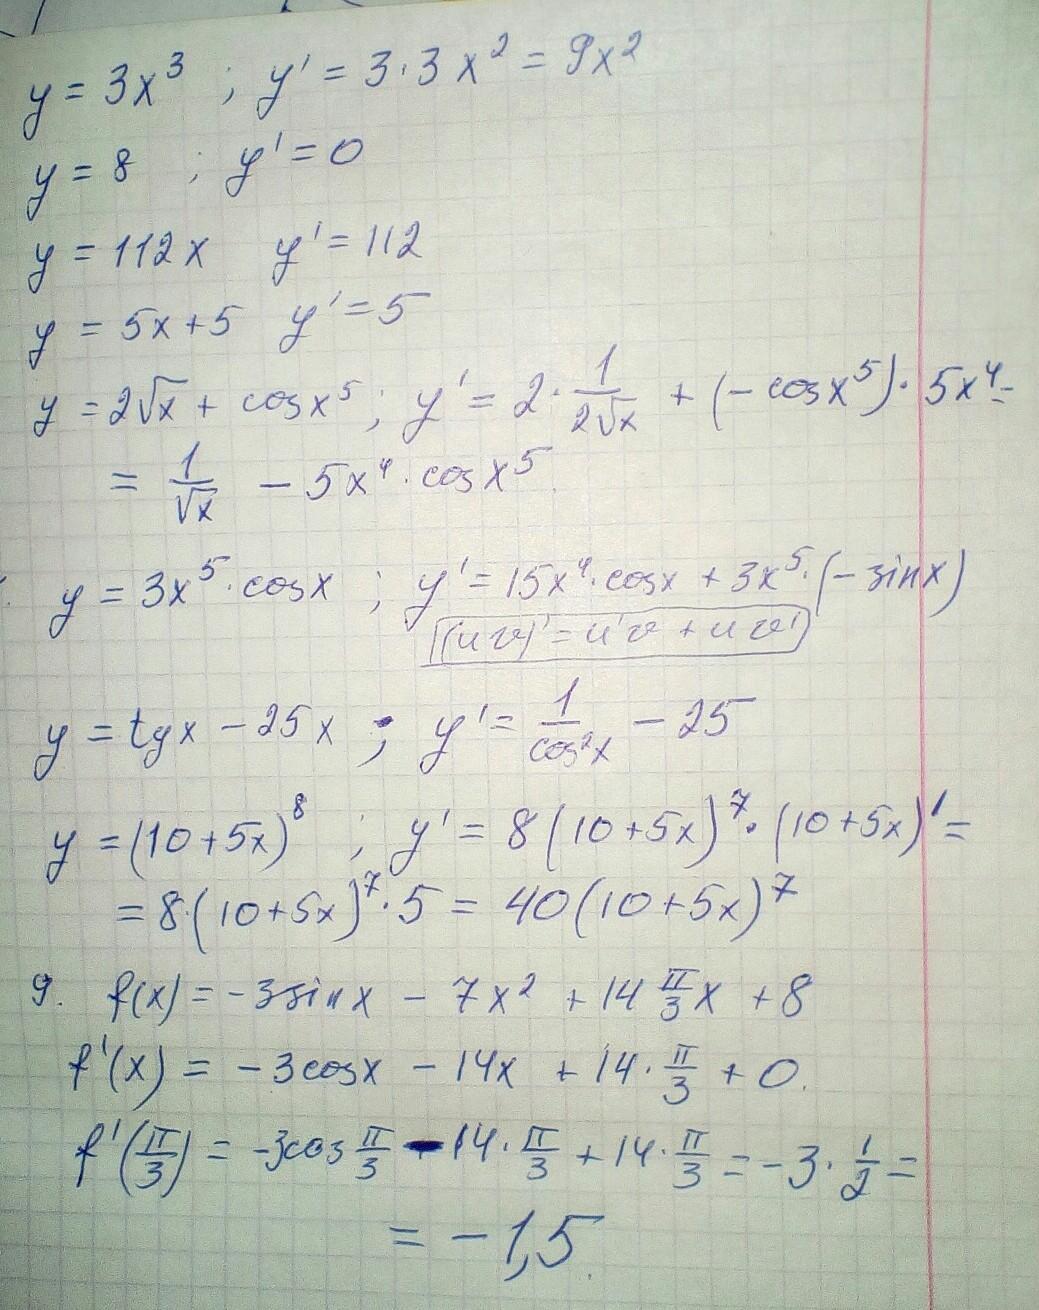 y = 3x³ ; y' = 3·3x² = 9x²
y = 8 ; y' = 0
y = 112x y' = 112
y = 5x+5 y' = 5
y = 2√x + cosx⁵ ; y' = 2· 1/(2√x) + (- cosx⁵)· 5x⁴ =
= 1/√x - 5x⁴· cosx⁵
y = 3x⁵· cosx ; y' = 15x⁴· cosx + 3x⁵· (- sinx)
(uv)' = u'v + uv'
y = tgx - 25x ; y' = 1/cos²x - 25
y = (10+5x)⁸ ; y' = 8(10+5x)⁷· (10+5x)' =
= 8·(10+5x)⁷· 5 = 40(10+5x)⁷
9. f(x) = -3sinx - 7x² + 14 π/3 x + 8
f'(x) = -3cosx - 14x + 14· π/3 + 0.
f'(π/3) = -3cos π/3 - 14· π/3 + 14· π/3 = -3· 1/2 =
= -1,5